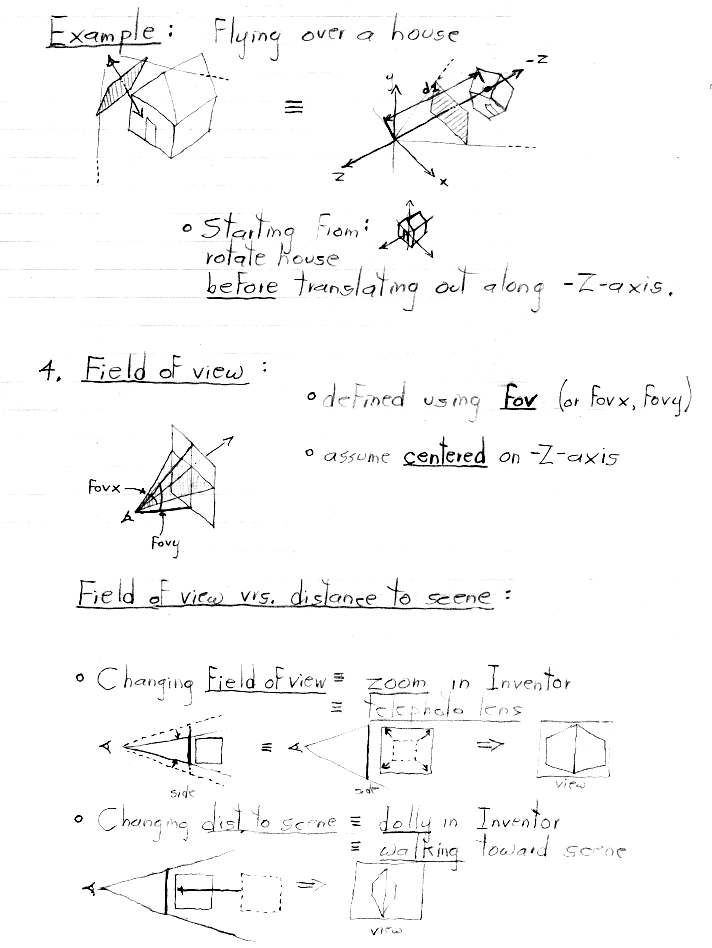 Example: Flying over a house
≡
y
d1
-Z
Z
x
Starting from:
rotate house
before translating out along -Z-axis.
4. Field of view :
defined using Fov (or Fovx, Fovy)
assume centered on -Z-axis
Fovx
Fovy
Field of view vrs. distance to scene :
Changing Field of view ≡ zoom in Inventor
≡ telephoto lens
≡ ⇒
side side view
Changing dist. to scene ≡ dolly in Inventor
≡ walking toward scene
⇒
view